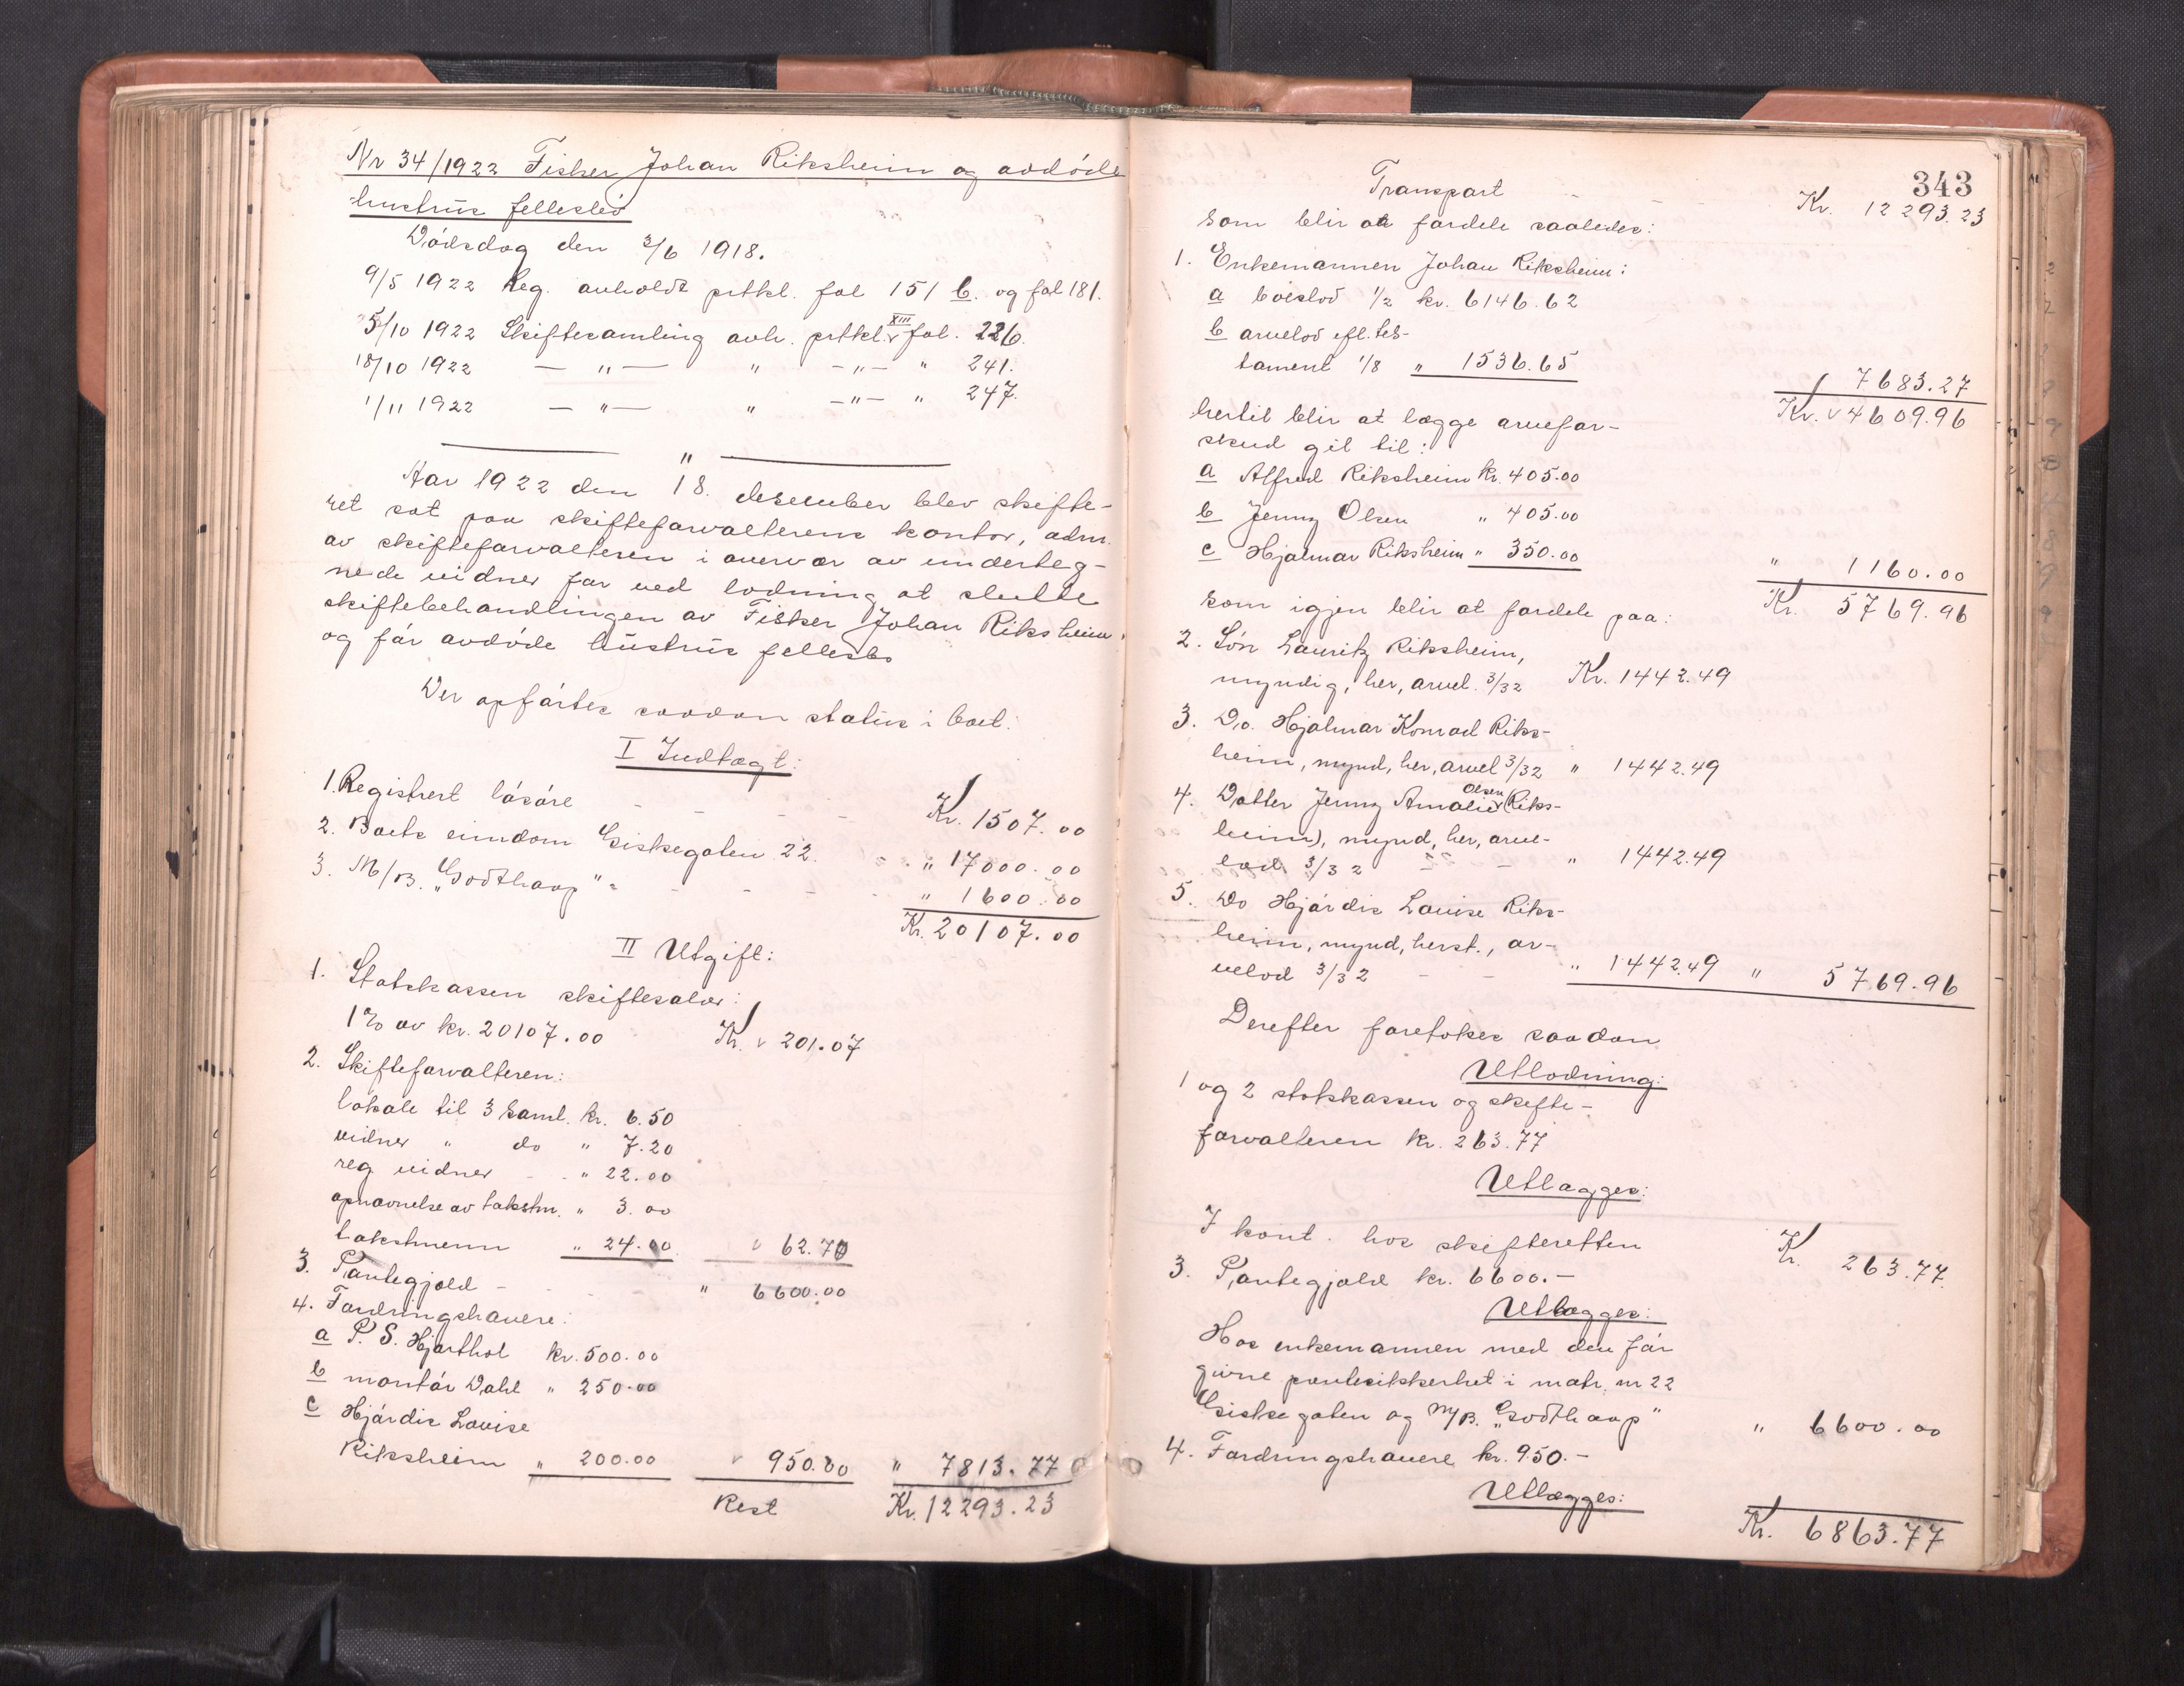 Nr 34/1922 Fisker Johan Riksheim og avdøde
hustrus fellesbo
Dødsdag den 3/6 1918.
9/5 1922 Reg. avholdt prtkl. fol 151 b. og fol 181.
5/10 1922 Skiftesamling avh. prtkl. XIII fol. 226.
18/10 1922 — " — " — " — " 241.
1/11 1922 — " — " — " — " 247.
"
Aar 1922 den 18. desember blev skifte-
ret sat paa skifteforvalterens kontor, adm.
av skifteforvalteren i overvær av underteg-
nede vidner for ved lodning at slutte
skiftebehandlingen av Fisker Johan Riksheim
og før avdøde hustrus fellesbo
Der opførtes saadan status i boet:
I Indtægt:
1. Registrert løsøre - - - - Kr. 1507.00
2. Boets eiendom Giskegaten 22. - - " 17000.00
3. M/B. "Godthaap" - - - - " 1600.00
Kr. 20107.00
II Utgift:
1. Statskassen skiftesalær:
1% av kr. 20107.00 Kr. 201.07
2. Skifteforvalteren:
lokale til 3 saml. kr. 6.50
vidner " do " 7.20
reg. vidner - - " 22.00
opnævnelse av takstm. " 3.00
takstmenn " 24.00 62.70
3. Pantegjæld - - - - " 6600.00
4. Fordringshavere:
a P. S. Hjorthol kr. 500.00
b montør Dahl " 250.00
c Hjørdis Lovise
Riksheim " 200.00 950.00 " 7813.77
Rest Kr. 12293.23
343
Transport - - Kr. 12293.23
som blir at fordele saaledes:
1. Enkemannen Johan Riksheim:
a boeslod 1/2 kr. 6146.62
b arvelod efl. tes-
tament 1/8 " 1536.65
7683.27
Kr. 4609.96
hertil blir at lægge arvefor-
skud git til:
a Alfred Riksheim kr. 405.00
b Jenny Olsen " 405.00
c Hjalmar Riksheim " 350.00
" 1160.00
Kr. 5769.96
som igjen blir at fordele paa:
2. Søn Lauritz Riksheim,
myndig, her, arvel. 3/32 Kr. 1442.49
3. Do. Hjalmar Konrad Riks-
heim, mynd, her, arvel 3/32 " 1442.49
4. Datter Jenny Amalie Olsen (Riks-
heim), mynd, her, arve-
lod 3/32 - - " 1442.49
5. Do Hjørdis Lovise Riks-
heim, mynd, herst., ar-
velod 3/32 - - " 1442.49 " 5769.96
Derefter foretokes saadan
Utlodning:
1 og 2 statskassen og skifte-
forvalteren kr. 263.77
Utlægges:
I kont. hos skifteretten Kr. 263.77.
3. Pantegjæld kr. 6600.—
Utlægges:
Hos enkemannen med den før
givne pantesikkerhet i matr. nr 22
Giskegaten og M/B. "Godthaap" " 6600.00
4. Fordringshavere kr. 950.—
Utlægges:
Kr. 6863.77